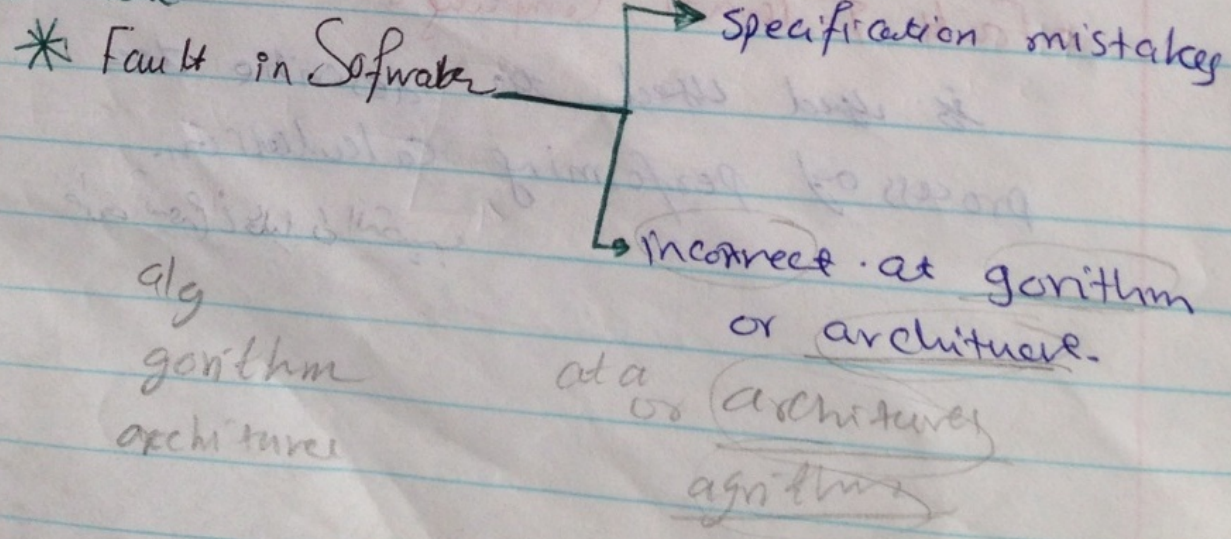 * Fault in Sofware
Specification mistakes
incorrect. at gorithm
or archituere.
alg
gorithm
architures
at a
or architures
agrithm